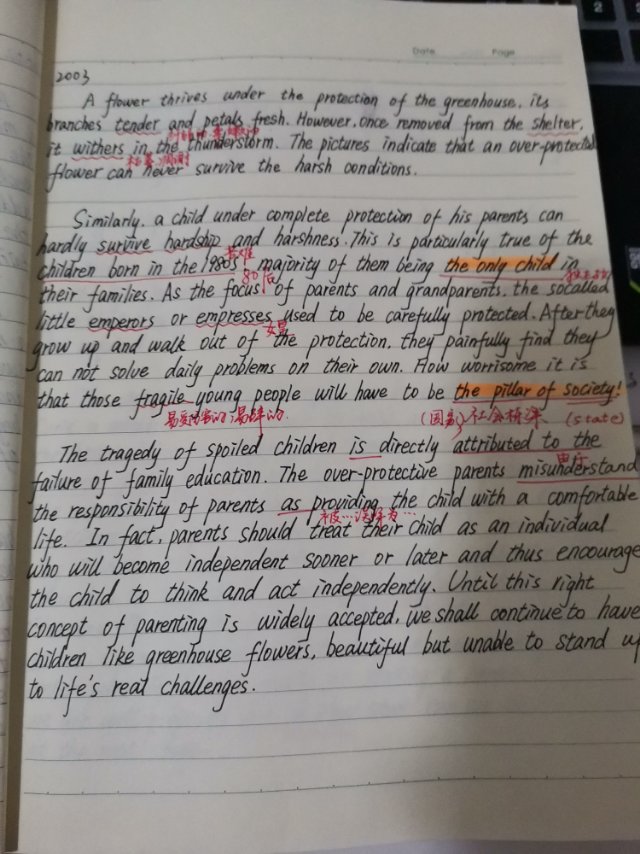 Date Page
2003
A flower thrives under the protection of the greenhouse, its
branches tender and petals fresh. However, once removed from the shelter,
it withers in the thunderstorm. The pictures indicate that an over-protected
枯萎、凋谢
flower can never survive the harsh conditions.
Similarly, a child under complete protection of his parents can
hardly survive hardship and harshness. This is particularly true of the
苦难
children born in the 1980s, majority of them being the only child in
80后 独生子女
their families. As the focus of parents and grandparents, the socalled
little emperors or empresses used to be carefully protected. After they
女皇
grow up and walk out of the protection, they painfully find they
can not solve daily problems on their own. How worrisome it is
that those fragile young people will have to be the pillar of society!
易受伤害的、易碎的 (国家)社会栋梁 (state)
The tragedy of spoiled children is directly attributed to the
failure of family education. The over-protective parents misunderstand
the responsibility of parents as providing the child with a comfortable
被…误解为…
life. In fact, parents should treat their child as an individual
who will become independent sooner or later and thus encourage
the child to think and act independently. Until this right
concept of parenting is widely accepted, we shall continue to have
children like greenhouse flowers, beautiful but unable to stand up
to life's real challenges.